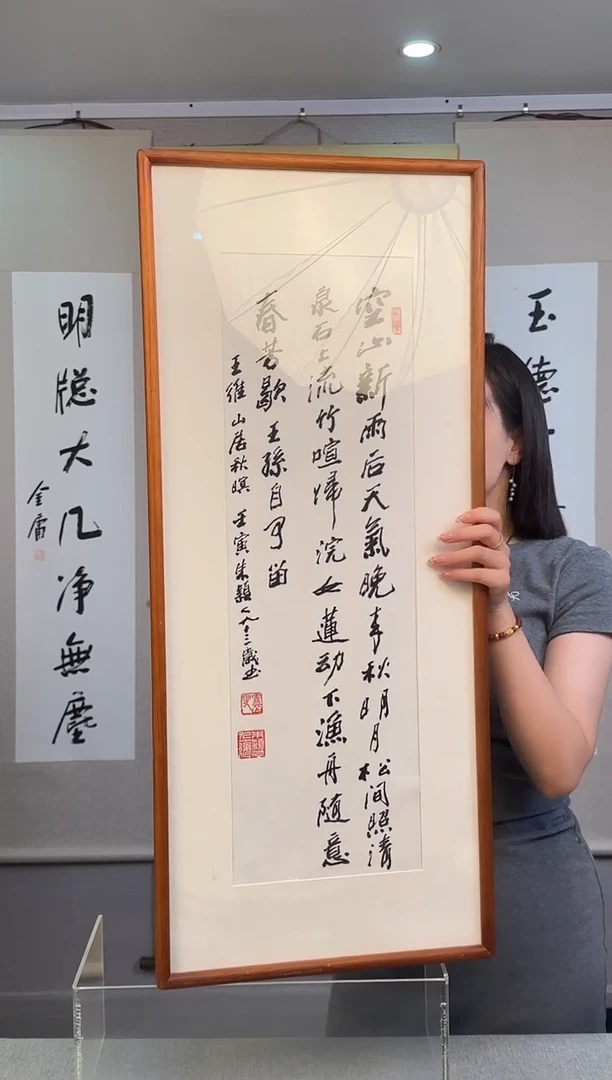 玉德
空山新雨后天氣晚来秋明月松间照清
泉石上流竹喧帰浣女蓮动下漁舟随意
春芳歇王孫自可留
王維山居秋暝 壬寅朱穎人九十三歲书
明牕大几净無塵
金庸